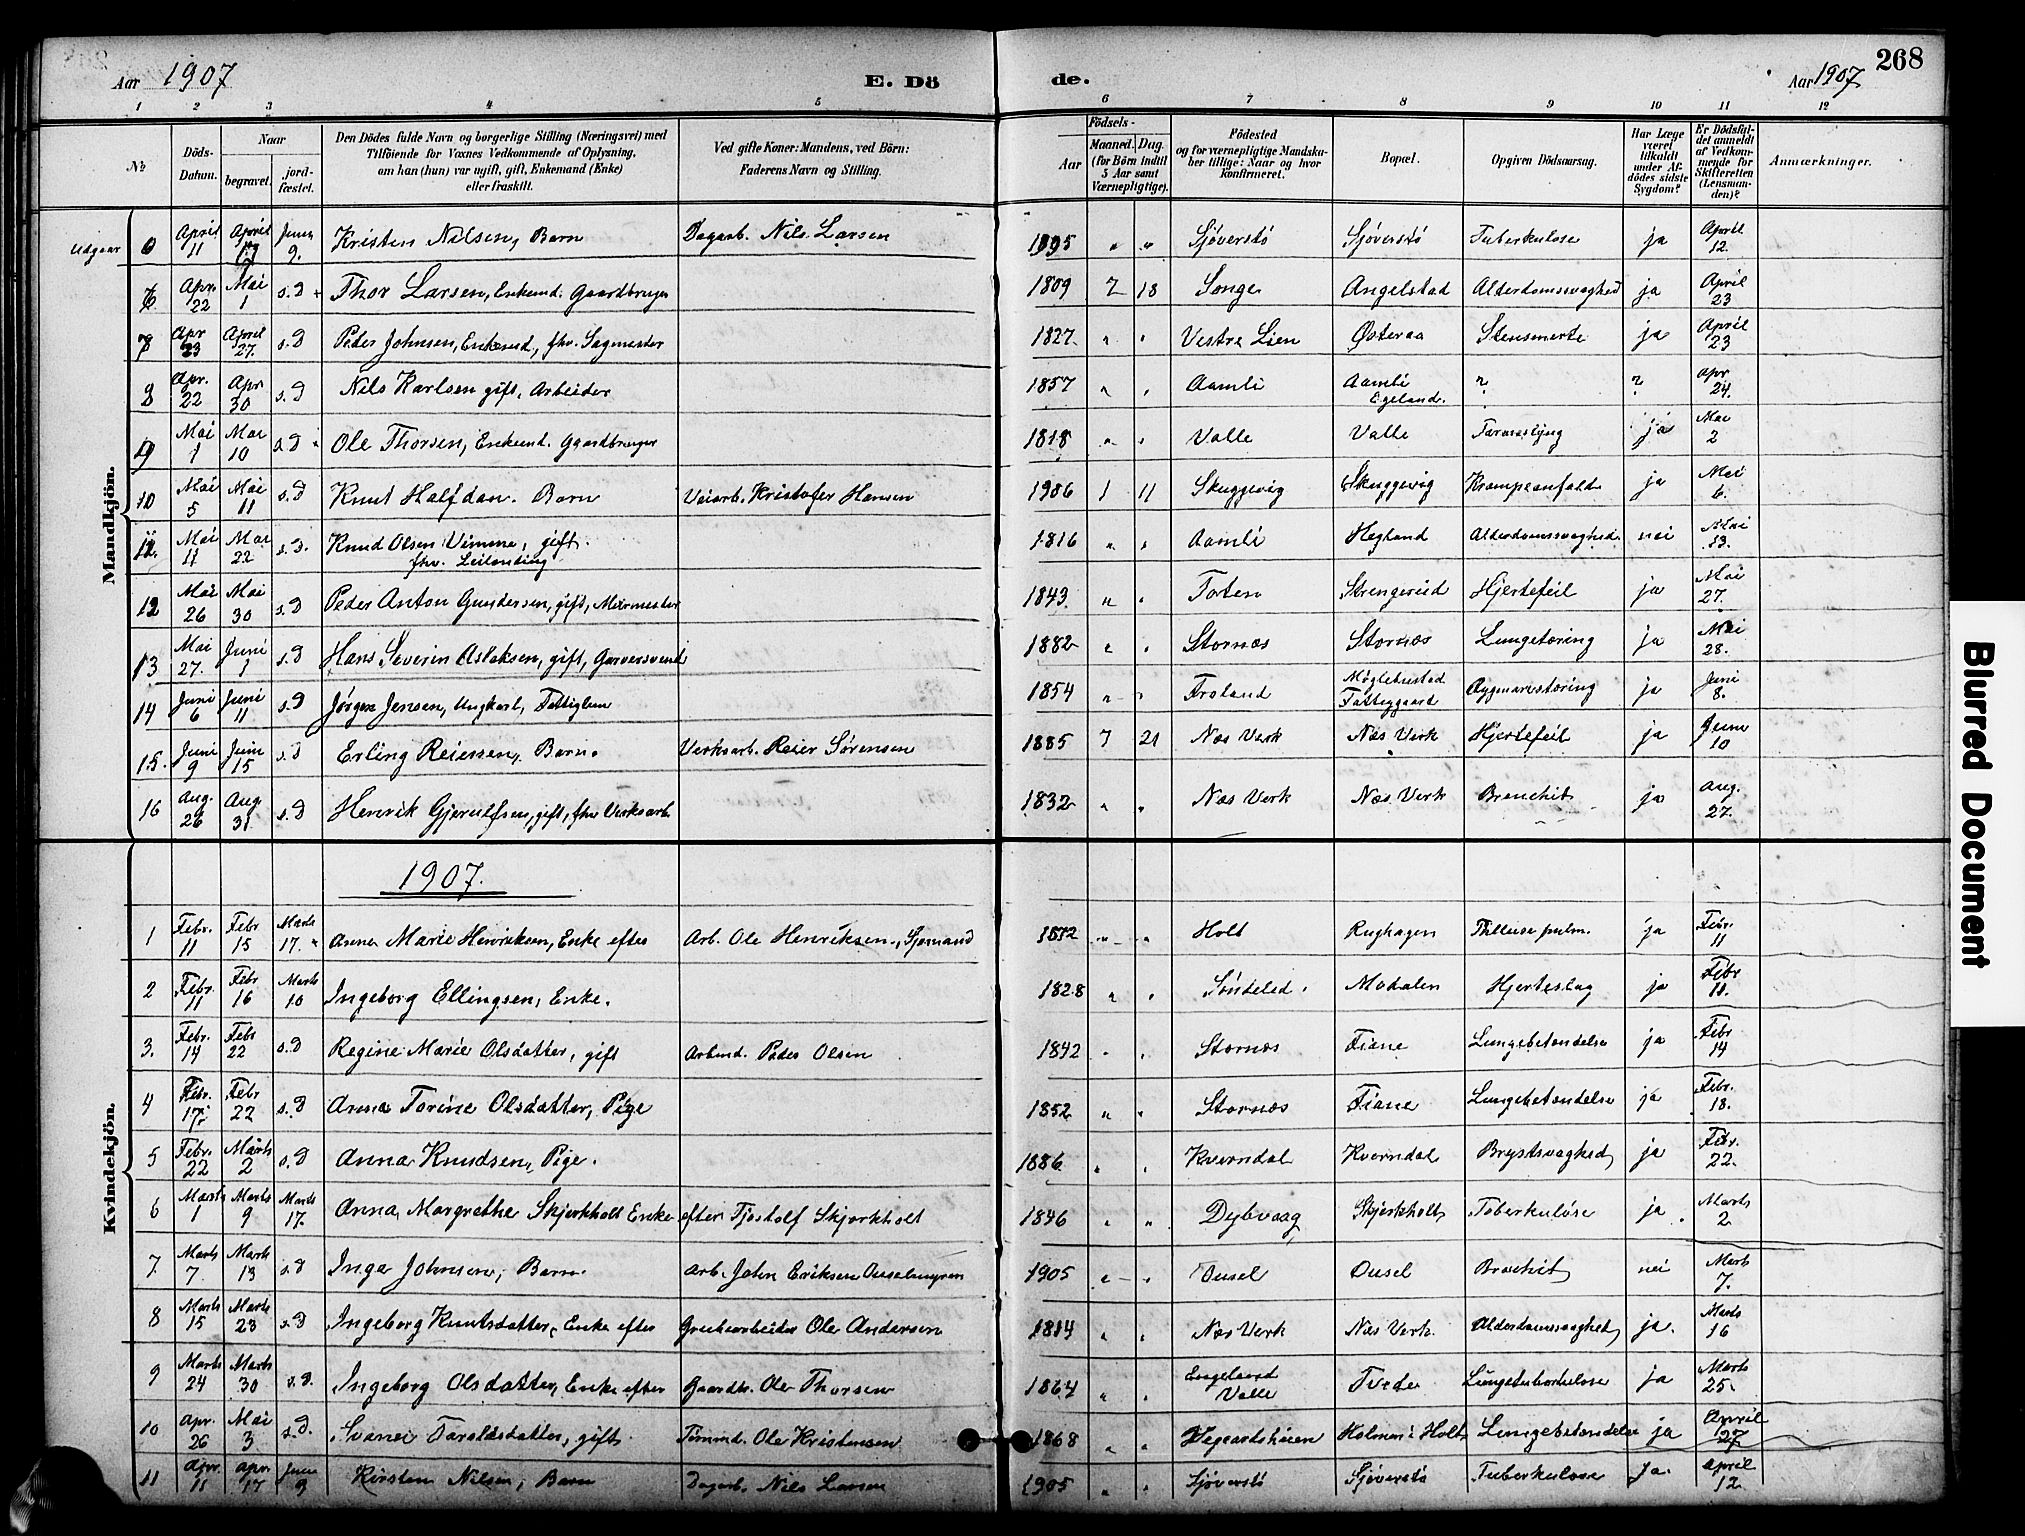 268
Aar 1907 E. Dö de. Aar 1907
1 2 3 4 5 6 7 8 9 10 11 12
No Döds-Datum. Naar begravet. jord-fæstet. Den Dödes fulde Navn og borgerlige Stilling (Næringsvei) med Tilföiende for Voxnes Vedkommende af Oplysning, om han (hun) var ugift, gift, Enkemand (Enke) eller fraskilt. Ved gifte Koner: Mandens, ved Börn: Faderens Navn og Stilling. Födsels- Aar Maaned. Dag. (for Börn indtil 5 Aar samt Værnepligtige). Födested og for værnepligtige Mandska-ber tillige: Naar og hvor konfirmeret. Bopæl. Opgiven Dödsaarsag. Har Læge været tilkaldt under Af-dödes sidste Sygdom? Er Dödsfal-det anmeldt af Vedkom-mende for Skifteretten (Lensman-den)? Anmærkninger.
Mandkjön.
Udgaar 6 April 11 April 17 Juni 9. Kristen Nilsen, Barn Dagarb. Nils Larsen 1895 " " Sjøverstø Sjøverstø Tuberkulose ja April 12.
6 Apr. 22 Mai 1 s.D Thor Larsen, Enkemd. Gaardbruger 1809 7 18 Songe Angelstad Alderdomssvaghed ja April 23
7 Apr 23 April 27. s.D Peder Johnsen, Enkemd, fhv. Sagmester 1827 " " Vestre Lien Østeraa Stensmerte ja April 23
8 Apr. 22 Apr 30 s.D Nils Karlsen gift, Arbeider 1857 " " Aamli Aamli Egeland. ? ? apr 24.
9 Mai 1 Mai 10 s.D Ole Thorsen, Enkemd. Gaardbruger 1818 " " Valle Valle Tarmslyng ja Mai 2
10 Mai 5 Mai 11 s.D Knut Halfdan. Barn Veiarb. Kristofer Hansen 1906 1 11 Skuggevig Skuggevig Krampeanfald ja Mai 6.
11. Mai 11 Mai 22 s.D. Knud Olsen Vimme, gift. fhv. Leilending 1816 " " Aamli Hegland Alderdomssvaghed. nei Mai 13.
12 Mai 26 Mai 30 s.D Peder Anton Gundersen, gift, Murmester 1843. " " Toten Strengereid Hjertefeil ja Mai 27.
13 Mai 27. Juni 1 s.D Hans Severin Aslaksen, gift, Garversvend 1882 " " Stornæs Stornæs Lungetæring ja Mai 28.
14 Juni 6 Juni 11 s.D Jørgen Jensen, Ungkarl, Fattiglem 1854 " " Froland Møglebustad Fattiggaard Rygmarvstæring ja Juni 8.
15. Juni 9 Juni 15 s.D Erling Reiersen, Barn. Verksarb. Reier Sørensen 1885 7 21 Næs Verk Næs Verk Hjertefeil ja Juni 10
16 Aug. 26 Aug. 31 s.D Henrik Gjerulfsen, gift, fhv Verksarb. 1832 " " Næs Verk Næs Verk Bronchit ja Aug. 27.
Kvindekjön.
1907.
1 Febr. 11 Febr 15 Marts 17. Anna Marie Henriksen, Enke efter Arb. Ole Henriksen, 1832 " " Holt Rughagen pulm. ja Febr. 11
2 Febr. 11 Febr 16 Marts 10 Ingeborg Ellingsen, Enke. 1828 " " Søndeled Modalen Hjerteslag ja Febr 11.
3. Febr. 14 Febr 22 s.D Regine Marie Olsdatter, gift Arbmd. Peder Olsen 1842 " " Stornæs Fiane Lungebetendelse ja Febr 14
4 Febr. 17. Febr 22 s.D Anna Torine Olsdatter, Pige 1852 " " Stornæs Fiane Lungebetendelse ja Febr. 18.
5 Febr. 22 Marts 2 s.D Anna Knudsen, Pige. 1886 " " Kverndal Kverndal Brystsvaghed ja Febr. 22.
6 Marts 1 Marts 9 Marts 17. Anna Margrethe Skjerkholt Enke efter Tjostolf Skjerkholt 1846 " " Dybvaag Skjerkholt Tuberkulose ja Marts 2
7. Marts 7 Marts 13 s.D Inga Johnsen, Barn. Arb. John Eriksen Ouselmyren 1905 " " Ousel Ousel Bronchit nei Marts 7.
8 Marts 15 Marts 23 s.D Ingeborg Knutsdatter, Enke efter Grubearbeider Ole Andersen 1814 " " Næs Verk Næs Verk. Alderdomssvaghed ja. Marts 16
9 Marts 24 Marts 30 s.D. Ingeborg Olsdatter, Enke efter Gaardbr. Ole Thorsen 1864 " " Valle Tvede Lungetuberkulose ja Marts 25.
10 Apr. 26 Mai 3 s.D. Svanei Taraldsdatter, gift Tømmd. Ole Kristensen 1868 " " Vegaardsheien Holmen i Holt Lungebetendelse ja April 27
11 Apr. 11 Apr. 17 Juni 9 Kirsten Nilsen, Barn Dagarb. Nils Larsen 1905 " " Sjøverstø Sjøverstø Tuberkulose ja. April 12.
Blurred Document